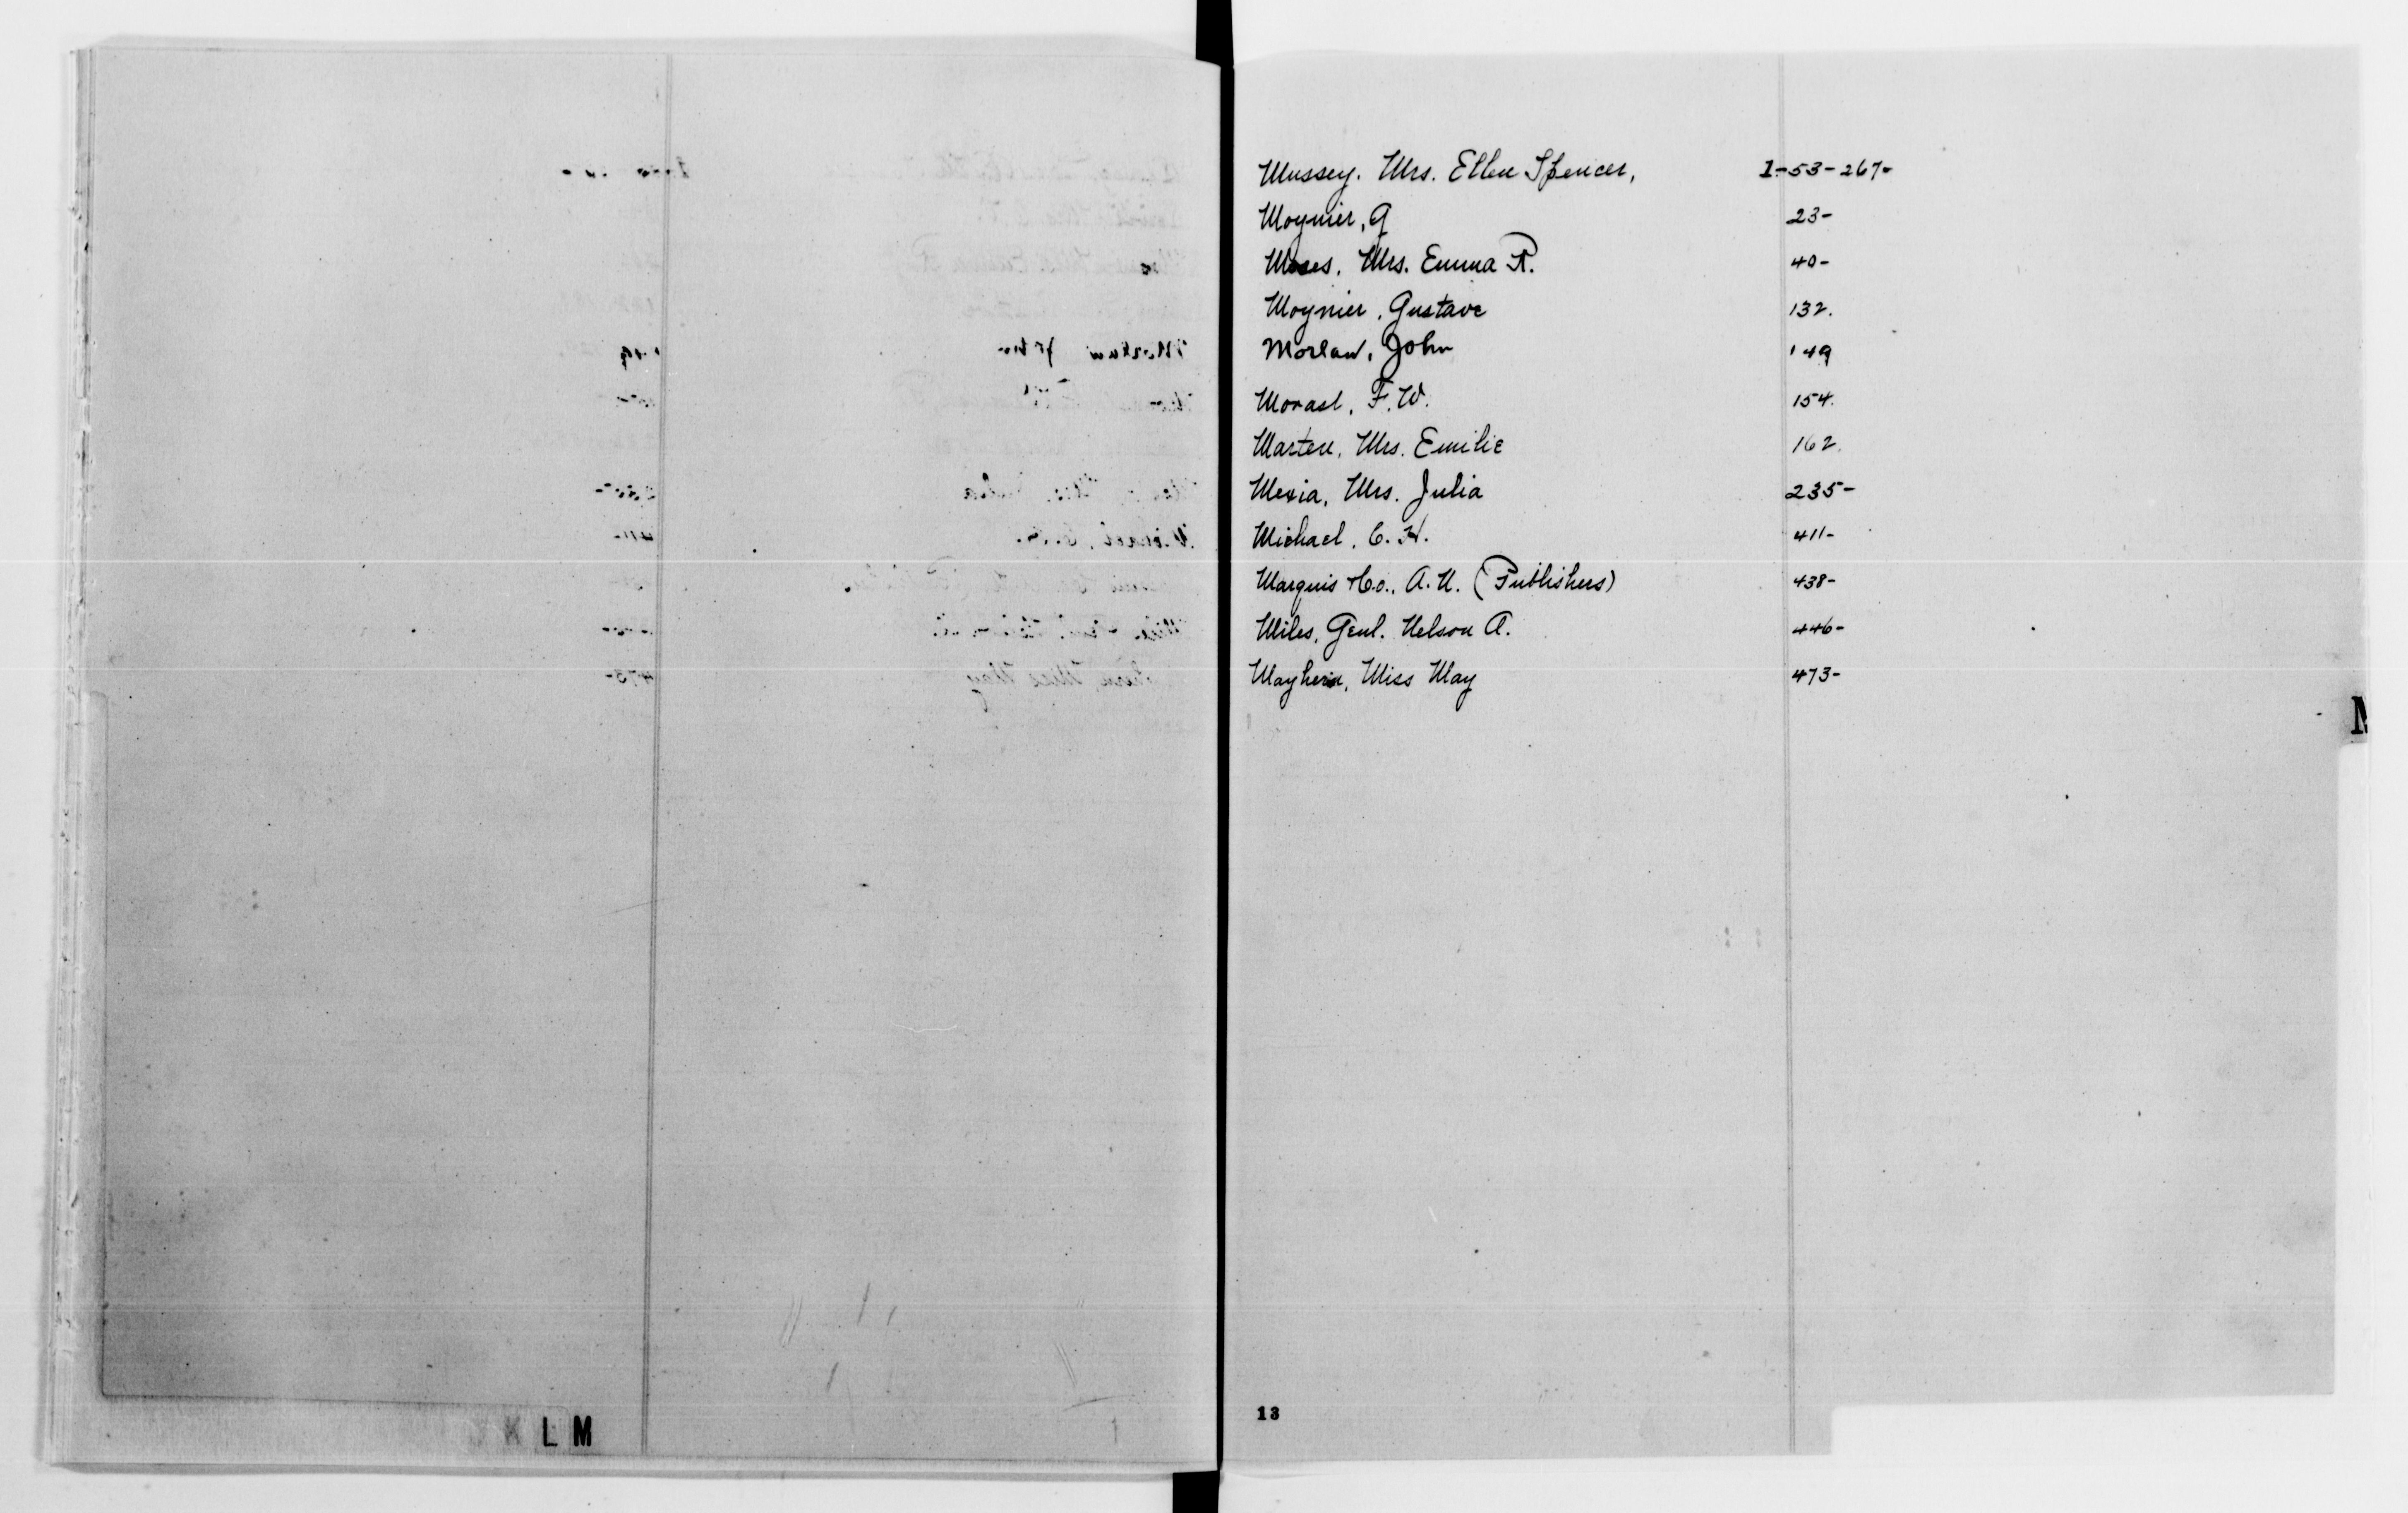 Mussey. Mrs. Ellen Spencer, 1-53-267-
Moynier, G 23-
Moses, Mrs. Emma R. 40-
Moynier, Gustave 132.
Morlan, John 149
Morast, F. W. 154.
Marten, Mrs. Emilie 162.
Mexia, Mrs. Julia 235-
Michael, C. H. 411-
Marquis & Co., A. N. (Publishers) 438-
Miles, Genl. Nelson A. 446-
Mayhern, Miss May 473-
M
13
K L M